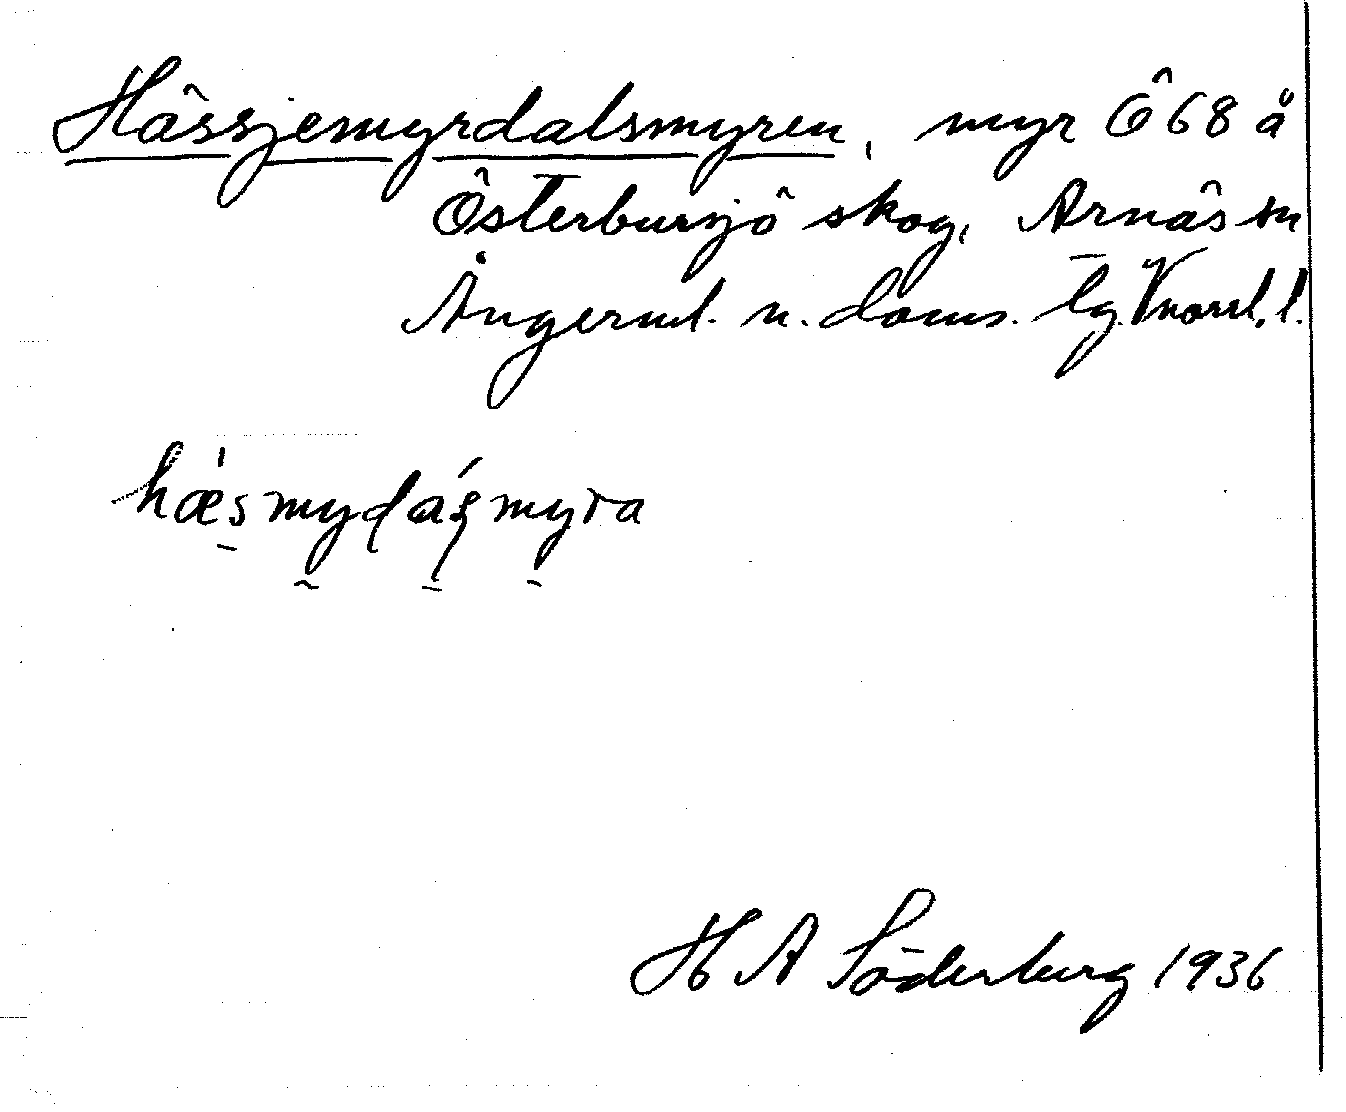 Hässjemyrdalsmyren, myr Ö 68 å
Österbursjö skog, Arnäs sn
Ångerml. n. doms. tg. Vnorrl. l.
hæ̀smydáʂmyra
H A Söderberg 1936